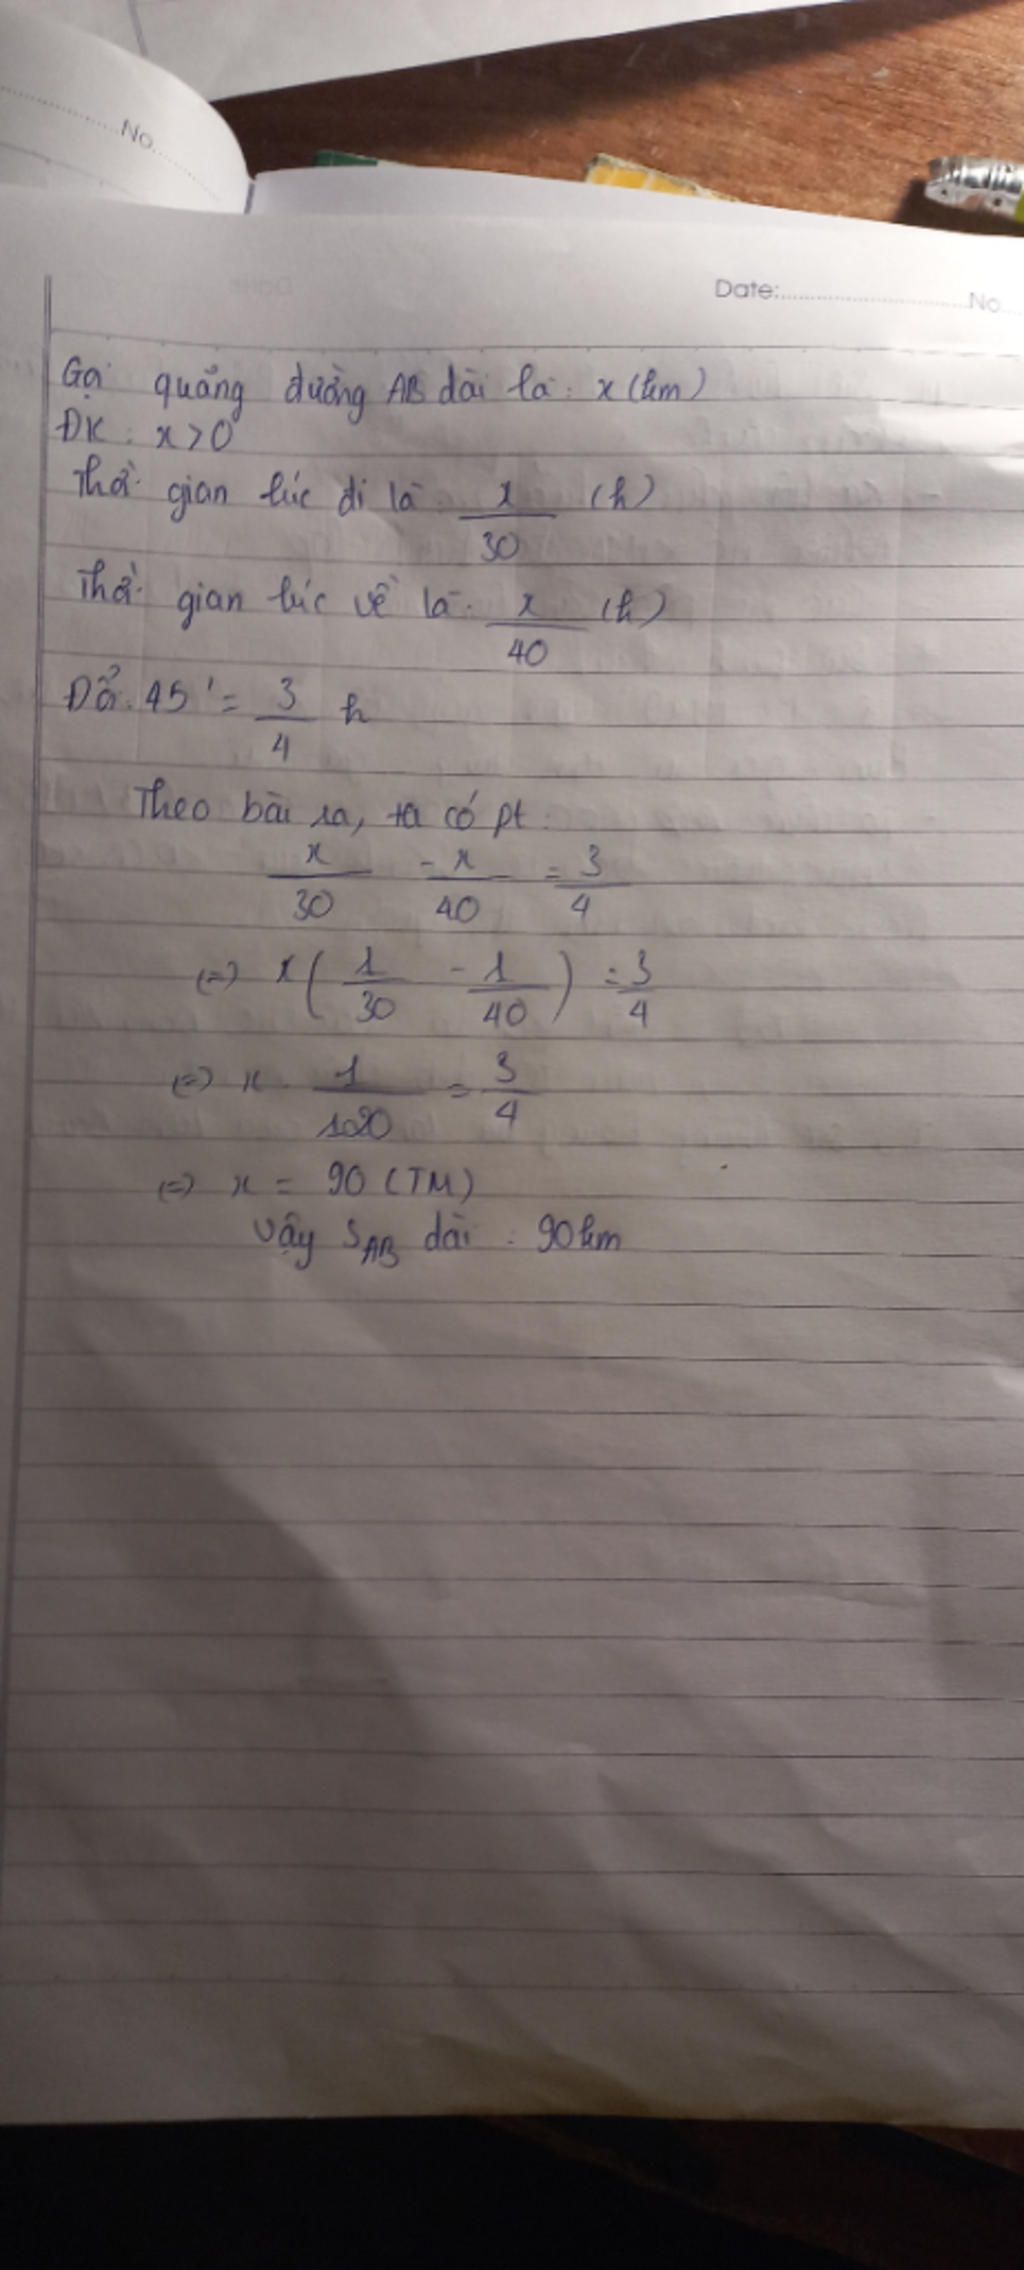 No
Date: No
Gọi quãng đường AB dài là: x (km)
ĐK: x > 0
Thời gian lúc đi là x/30 (h)
Thời gian lúc về là: x/40 (h)
Đổi: 45' = 3/4 h
Theo bài ra, ta có pt:
x/30 - x/40 = 3/4
(=) x(1/30 - 1/40) = 3/4
(=) x. 1/120 = 3/4
(=) x = 90 (TM)
Vậy SAB dài: 90km